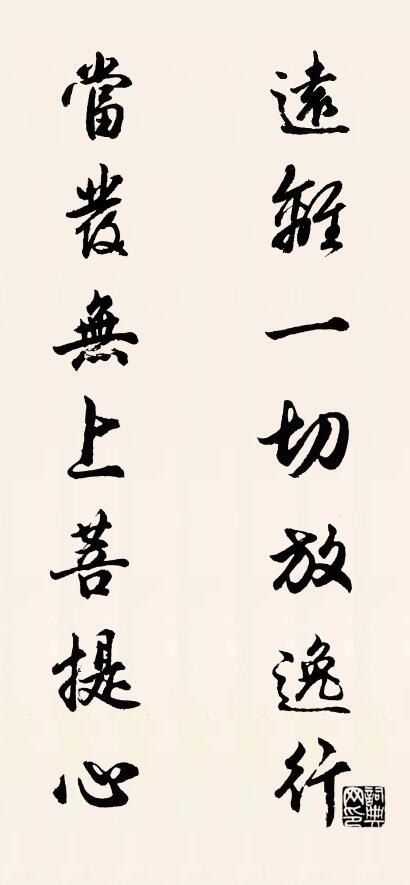 遠離一切放逸行
當發無上菩提心
詞典網印